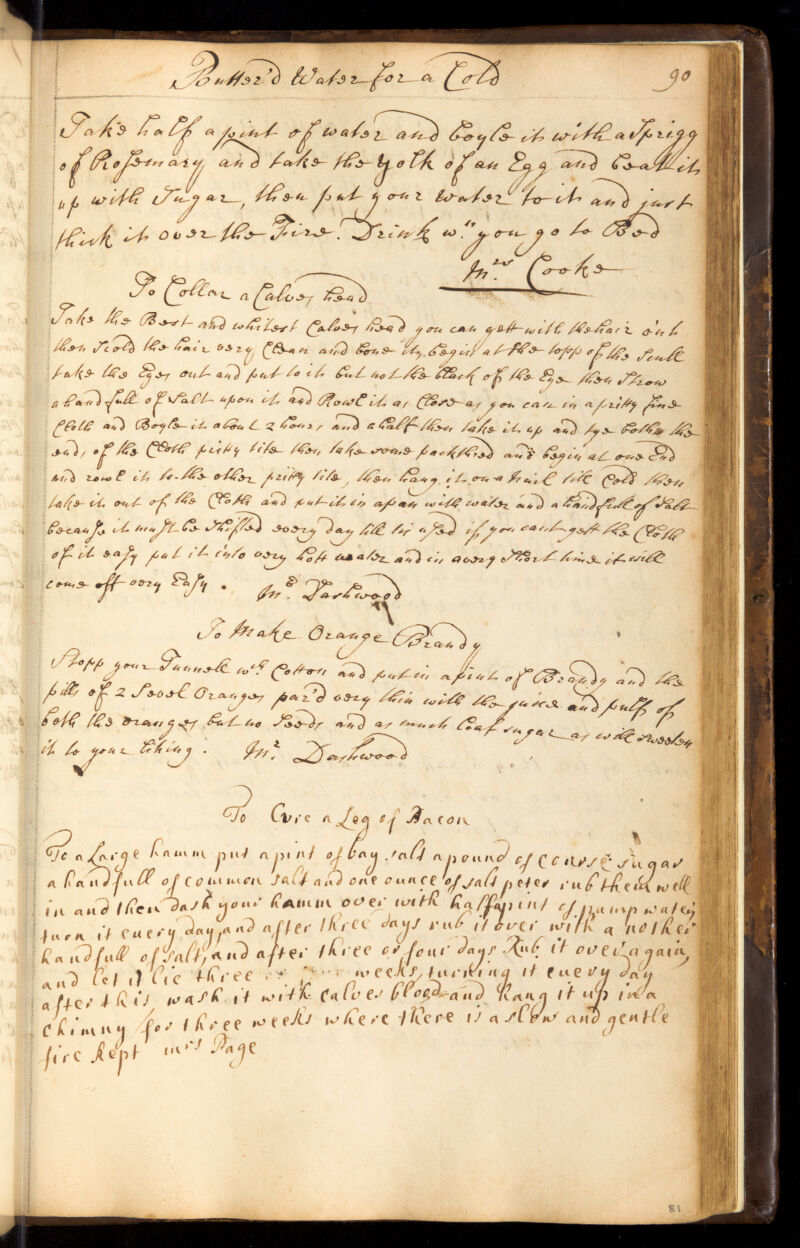 Butter'd Water for a Cold
90
Take half a pint of water and boyle it with a Sprigg
of Rosemary and take the yolk of an Egg and beat it
up with Sugar, then put your water to it and just
thick it over the Fire. Drink wn. you go to Bed
Mrs. Cooke
To Collar a Calves head
Take the Best and whitest Calves head you can gett with the hair on it
then Scold the hair very Clean and bone it, begin at the topp of the Scull
take the Eyes out and put to it but not the black of the Eye then Strow
a hand full of Salt upon it and Rowl it as Close as you can in a pritty fine
Cloth and Boyle it about 2 hours and a half then take it up and tye both the
ends of the Cloth pritty tite then take some packthred and begin at one End
and rowl it to the other pritty tite, then hang it on a Nail till Cold then
take it out of the Cloth and put it in a pan with water and a handfull of Salt
because it must be Shifted every day till tis used if you cant gett the Cloth
of it easy put it into very hott water and in a very Short time it will
come off very Easy. Mr. Dashwood
To Make Orange Brandy
Stopp your Tunnell wth. Cotton and put in a pint of Brandy and the
pills of 2 Sevel Oranges par'd very thin with the juice and pulp of
both the oranges but no Seeds and as much loaf sugar as will sweeten
it to your liking. Mr. Dashwood
To Cure a Leg of Bacon
To a Large hamm put a pint of bay salt a pound of course sugar
a handfull of common salt and one ounce of salt peter rub them well
in and then dash your hamm over with half a pint of pump water
turn it every day, and after three days rub it over with a nother
handfull of salt, and after three or four days Rub it over again,
and let it lie three weeks, turning it every day
after this wash it with calves blood and hang it up in a
chimny for three weeks where there is a slow and gentle
fire kept mrs Page
81